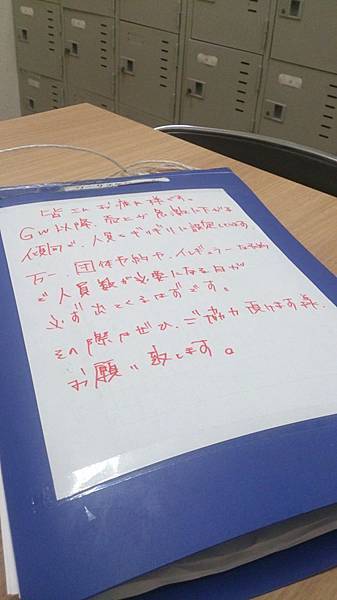 皆さんお疲れ様です。
GW以降、売上が急激に下がる
傾向で、人員もギリギリに設定しています
万一、団体予約や、イレギュラーな予約
で人員数が必要になる日が
必ず出てくるはずです。
その際はぜひ、ご協力頂けます様、
お願い致します。